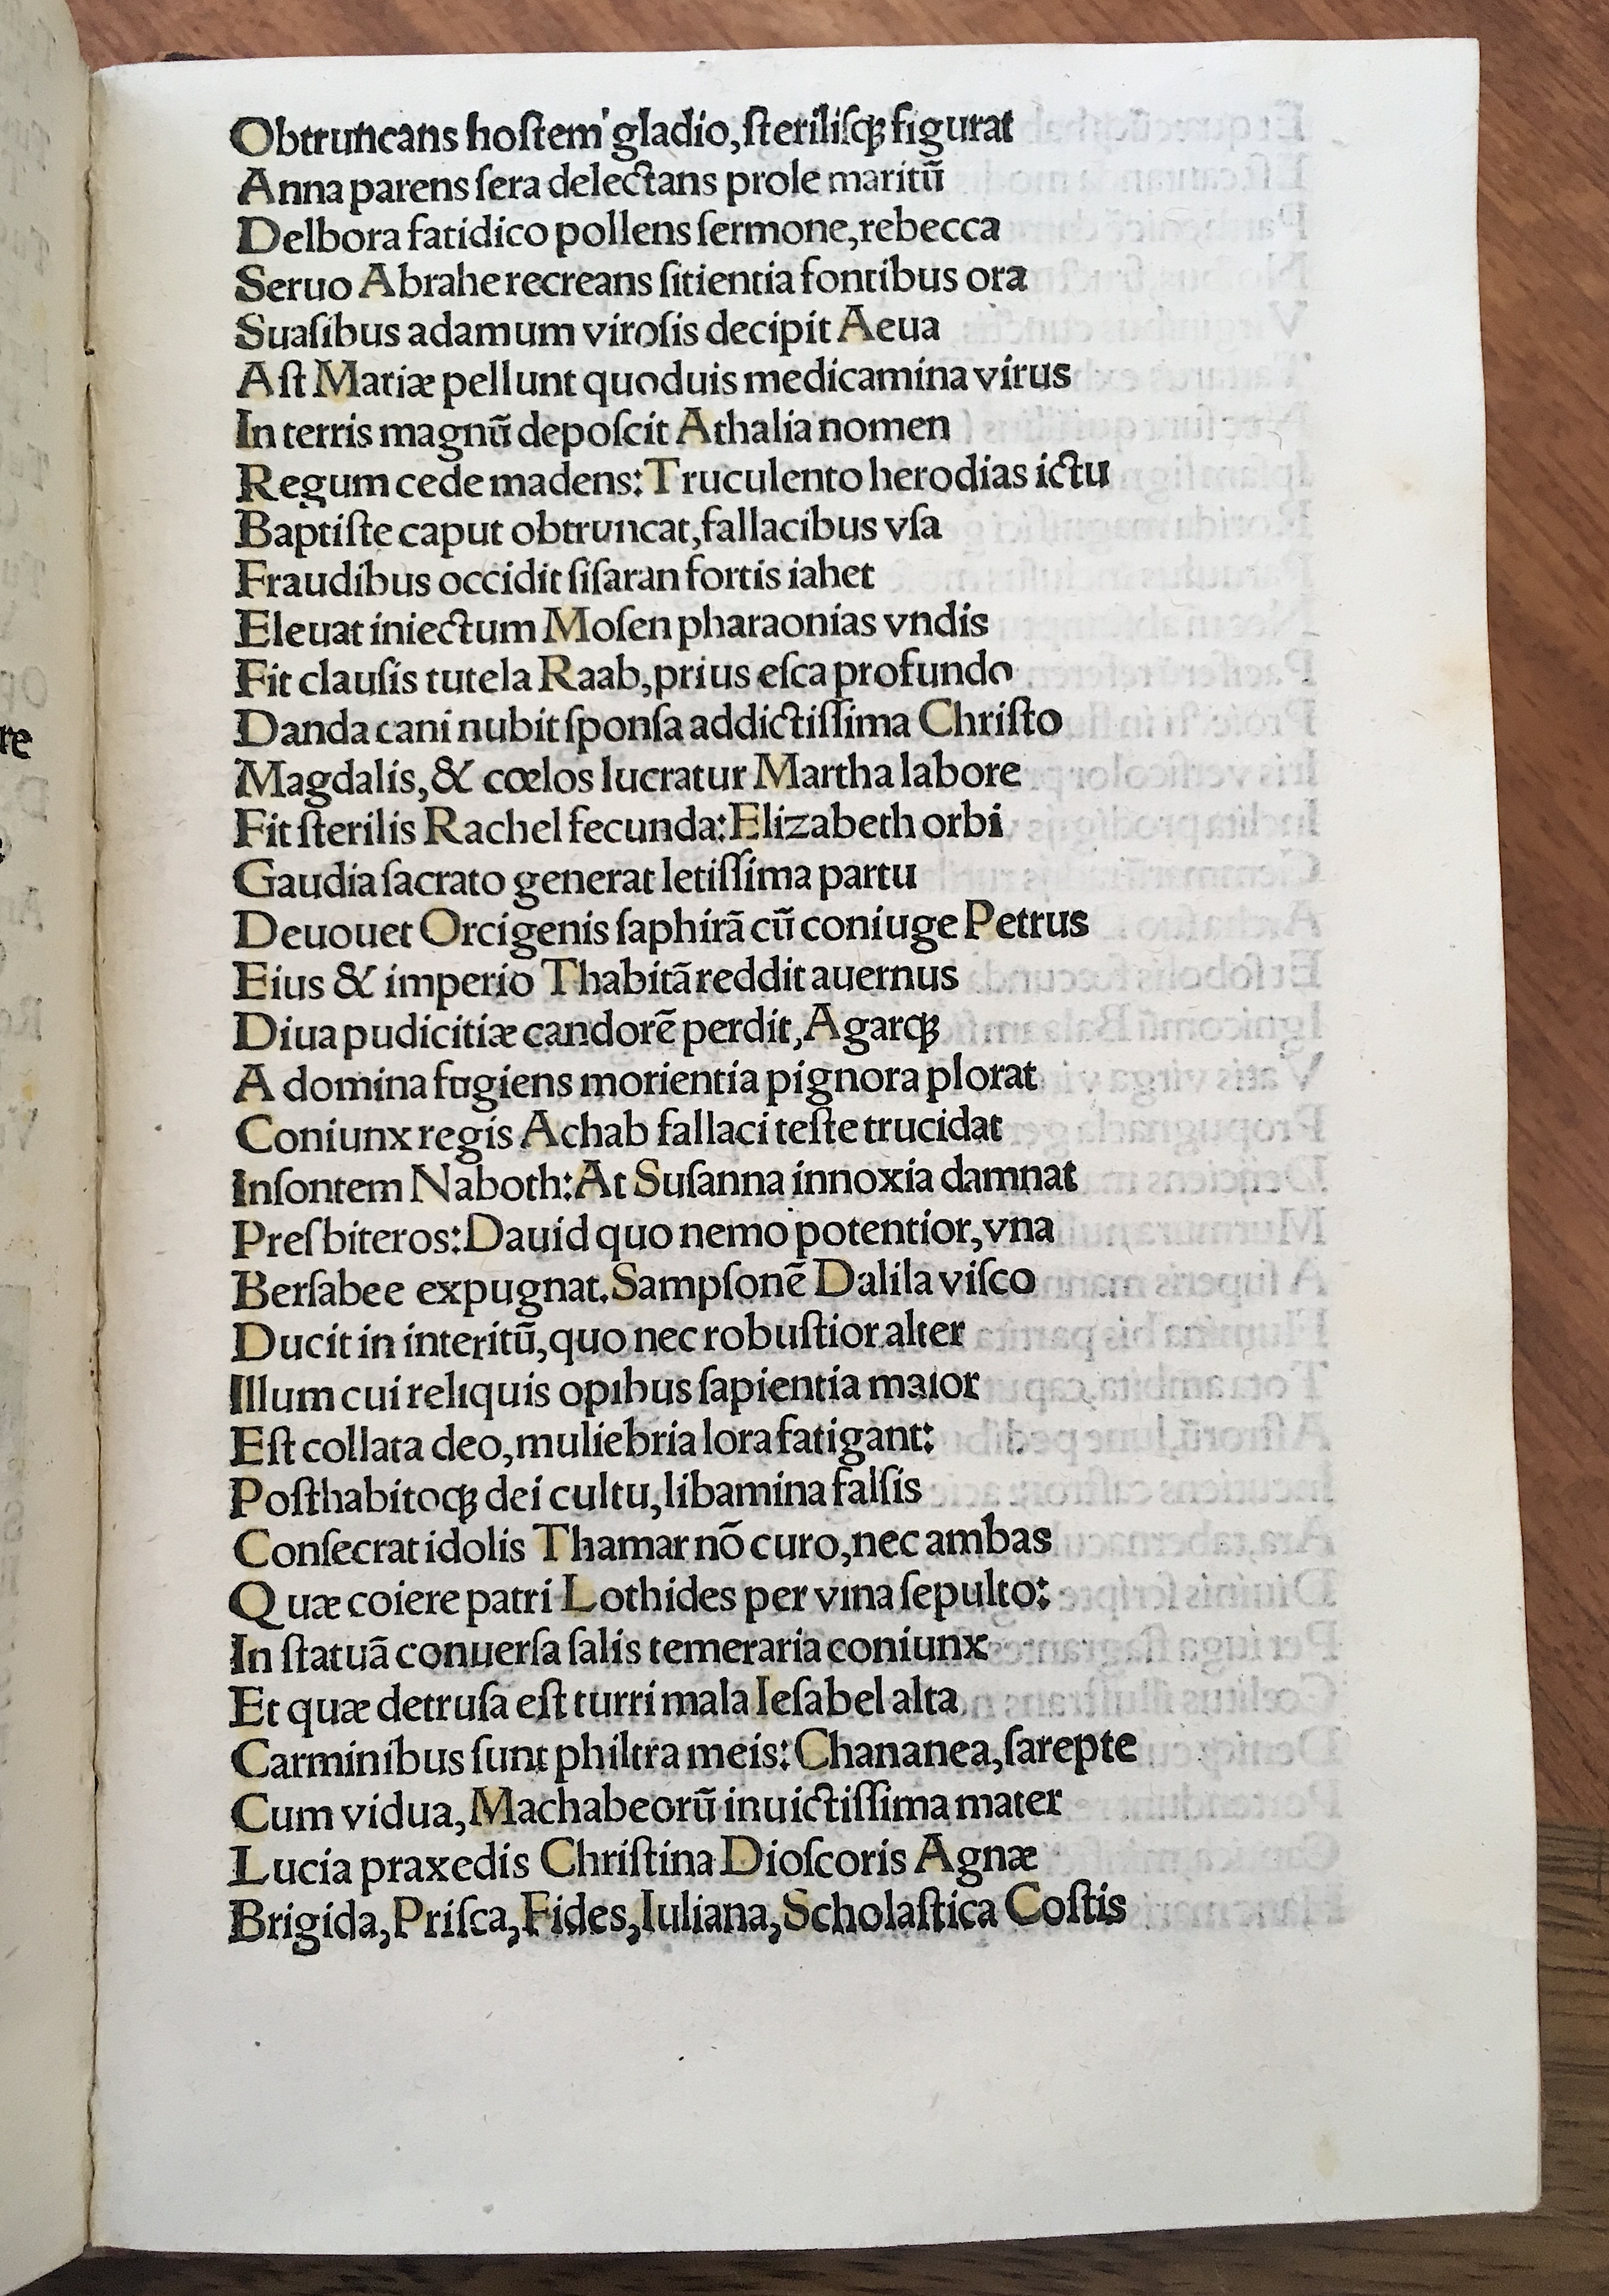 Obtruncans hoſtem gladio, ſteriliſqꝫ figurat
Anna parens ſera delectans prole maritū
Delbora fatidico pollens ſermone, rebecca
Seruo Abrahe recreans ſitientia fontibus ora
Suaſibus adamum viroſis decipit Aeua
Aſt Mariæ pellunt quoduis medicamina virus
In terris magnū depoſcit Athalia nomen
Regum cede madens: Truculento herodias ictu
Baptiſte caput obtruncat, fallacibus vſa
Fraudibus occidit ſiſaran fortis iahet
Eleuat iniectum Moſen pharaonias vndis
Fit clauſis tutela Raab, prius eſca profundo
Danda cani nubit ſponſa addictiſſima Chriſto
Magdalis, & cœlos lucratur Martha labore
Fit ſterilis Rachel fecunda: Elizabeth orbi
Gaudia ſacrato generat letiſſima partu
Deuouet Orcigenis ſaphirā cū coniuge Petrus
Eius & imperio Thabitā reddit auernus
Diua pudicitiæ candorē perdit, Agarqꝫ
A domina fugiens morientia pignora plorat
Coniunx regis Achab fallaci teſte trucidat
Inſontem Naboth: At Suſanna innoxia damnat
Preſbiteros: Dauid quo nemo potentior, vna
Berſabee expugnat. Sampſonē Dalila viſco
Ducit in interitū, quo nec robuſtior alter
Illum cui reliquis opibus ſapientia maior
Eſt collata deo, muliebria lora fatigant:
Poſthabitoqꝫ dei cultu, libamina falſis
Conſecrat idolis Thamar nō curo, nec ambas
Quæ coiere patri Lothides per vina ſepulto:
In ſtatuā conuerſa ſalis temeraria coniunx
Et quæ detruſa eſt turri mala Ieſabel alta
Carminibus ſunt philtra meis: Chananea, ſarepte
Cum vidua, Machabeorū inuictiſſima mater
Lucia praxedis Chriſtina Dioſcoris Agnæ
Brigida, Priſca, Fides, Iuliana, Scholaſtica Coſtis